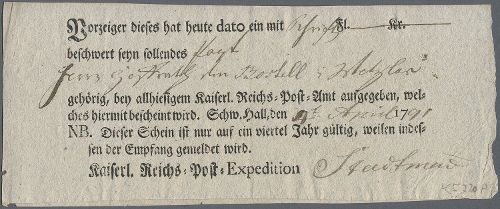 Vorzeiger dieses hat heute dato ein mit Schrift Fl. Kr.
beschwert seyn sollendes
Herr von Wetzlar
gehörig, bey allhiesigem Kaiserl. Reichs-Post-Amt aufgegeben, wel-
ches hiermit bescheint wird. Schw. Hall, den April 1791
NB. Dieser Schein ist nur auf ein viertel Jahr gültig, weilen indes-
sen der Empfang gemeldet wird.
Kaiserl. Reichs-Post-Expedition